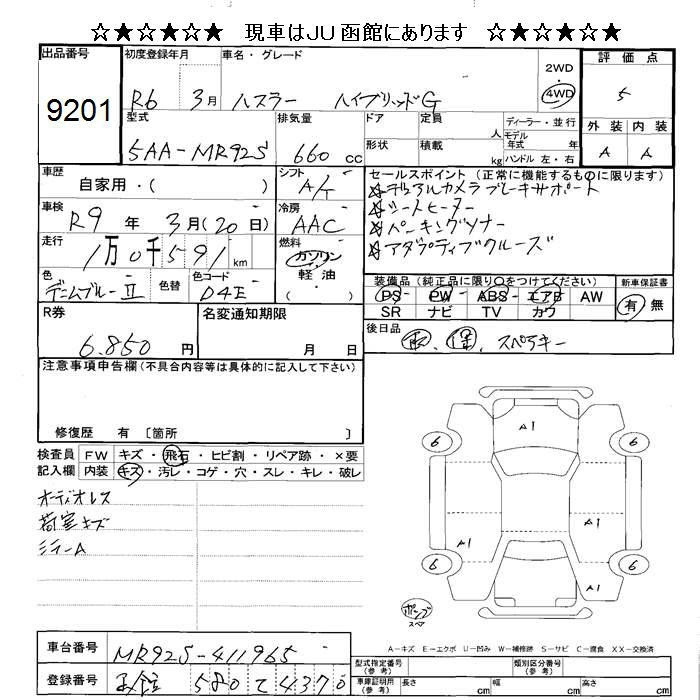 ☆★☆★☆★ 現車はJU函館にあります ☆★☆★☆★
出品番号 初度登録年月 車名・グレード 2WD・4WD 評価点
9201 R6 3月 ハスラー ハイブリッドG 5
型式 排気量 ドア 定員 人 ディーラー・並行 外装 内装
5AA-MR92S 660 cc 形状 積載 kg モデル年式 年 ハンドル 左・右 A A
車歴 自家用・( ) シフト A/T セールスポイント (正常に機能するものに限ります)
☆デュアルカメラブレーキサポート
車検 R9 年 3月(20日) 冷房 AAC ☆シートヒーター
☆パーキングソナー
走行 1万0千591km 燃料 ガソリン・軽油・( ) ☆アダプティブクルーズ
色 デニムブルーII 色替 色コード D4E
装備品 (純正品に限り○をつけてください) 新車保証書
PS・PW・ABS・エアB AW 有・無
SR ナビ TV カワ
R券 6.850 円 名変通知期限 月 日
後日品 取、保、スペアキー
注意事項申告欄 (不具合内容等は具体的に記入して下さい)
修復歴 有 〔箇所 〕
検査員記入欄 FW キズ・飛石・ヒビ割・リペア跡・×要
内装 キズ・汚レ・コゲ・穴・スレ・キレ・破レ
オーディオレス
荷室キズ
ミラーA
A1
6 6
A1
A1
6 6
A1
ポンプ
スペア
A-キズ E-エクボ U-凹み W-補修跡 S-サビ C-腐食 XX-交換済
車台番号 MR92S-411965
型式指定番号(参考) 類別区分番号(参考)
登録番号 函館 580 て 4370
車庫証明用(参考) 長さ cm 幅 cm 高さ cm